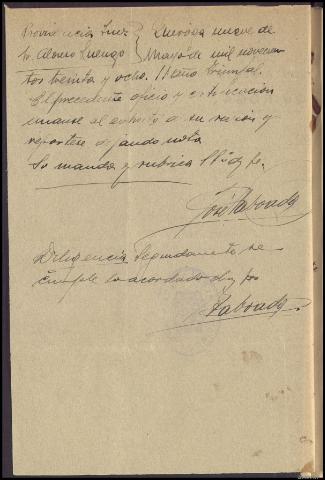 Providencia Juez } Quiroga nueve de
Sr. Alonso Luengo } Mayo de mil novecien
tos treinta y ocho. II Año Triunfal.
El precedente oficio y
unanse al a su y
dejando nota
Lo manda y rubrica SSª doy fe.
José Taboada
Diligencia Seguidamente se
cumple lo acordado doy fe
Taboada